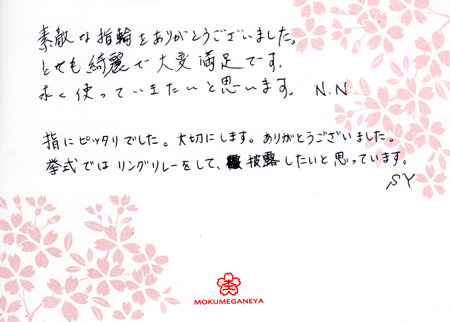 素敵な指輪をありがとうございました。
とても綺麗で大変満足です。
永く使っていきたいと思います。 N.N
指にピッタリでした。大切にします。ありがとうございました。
挙式ではリングリレーをして、披露したいと思っています。
S.Y
MOKUMEGANEYA